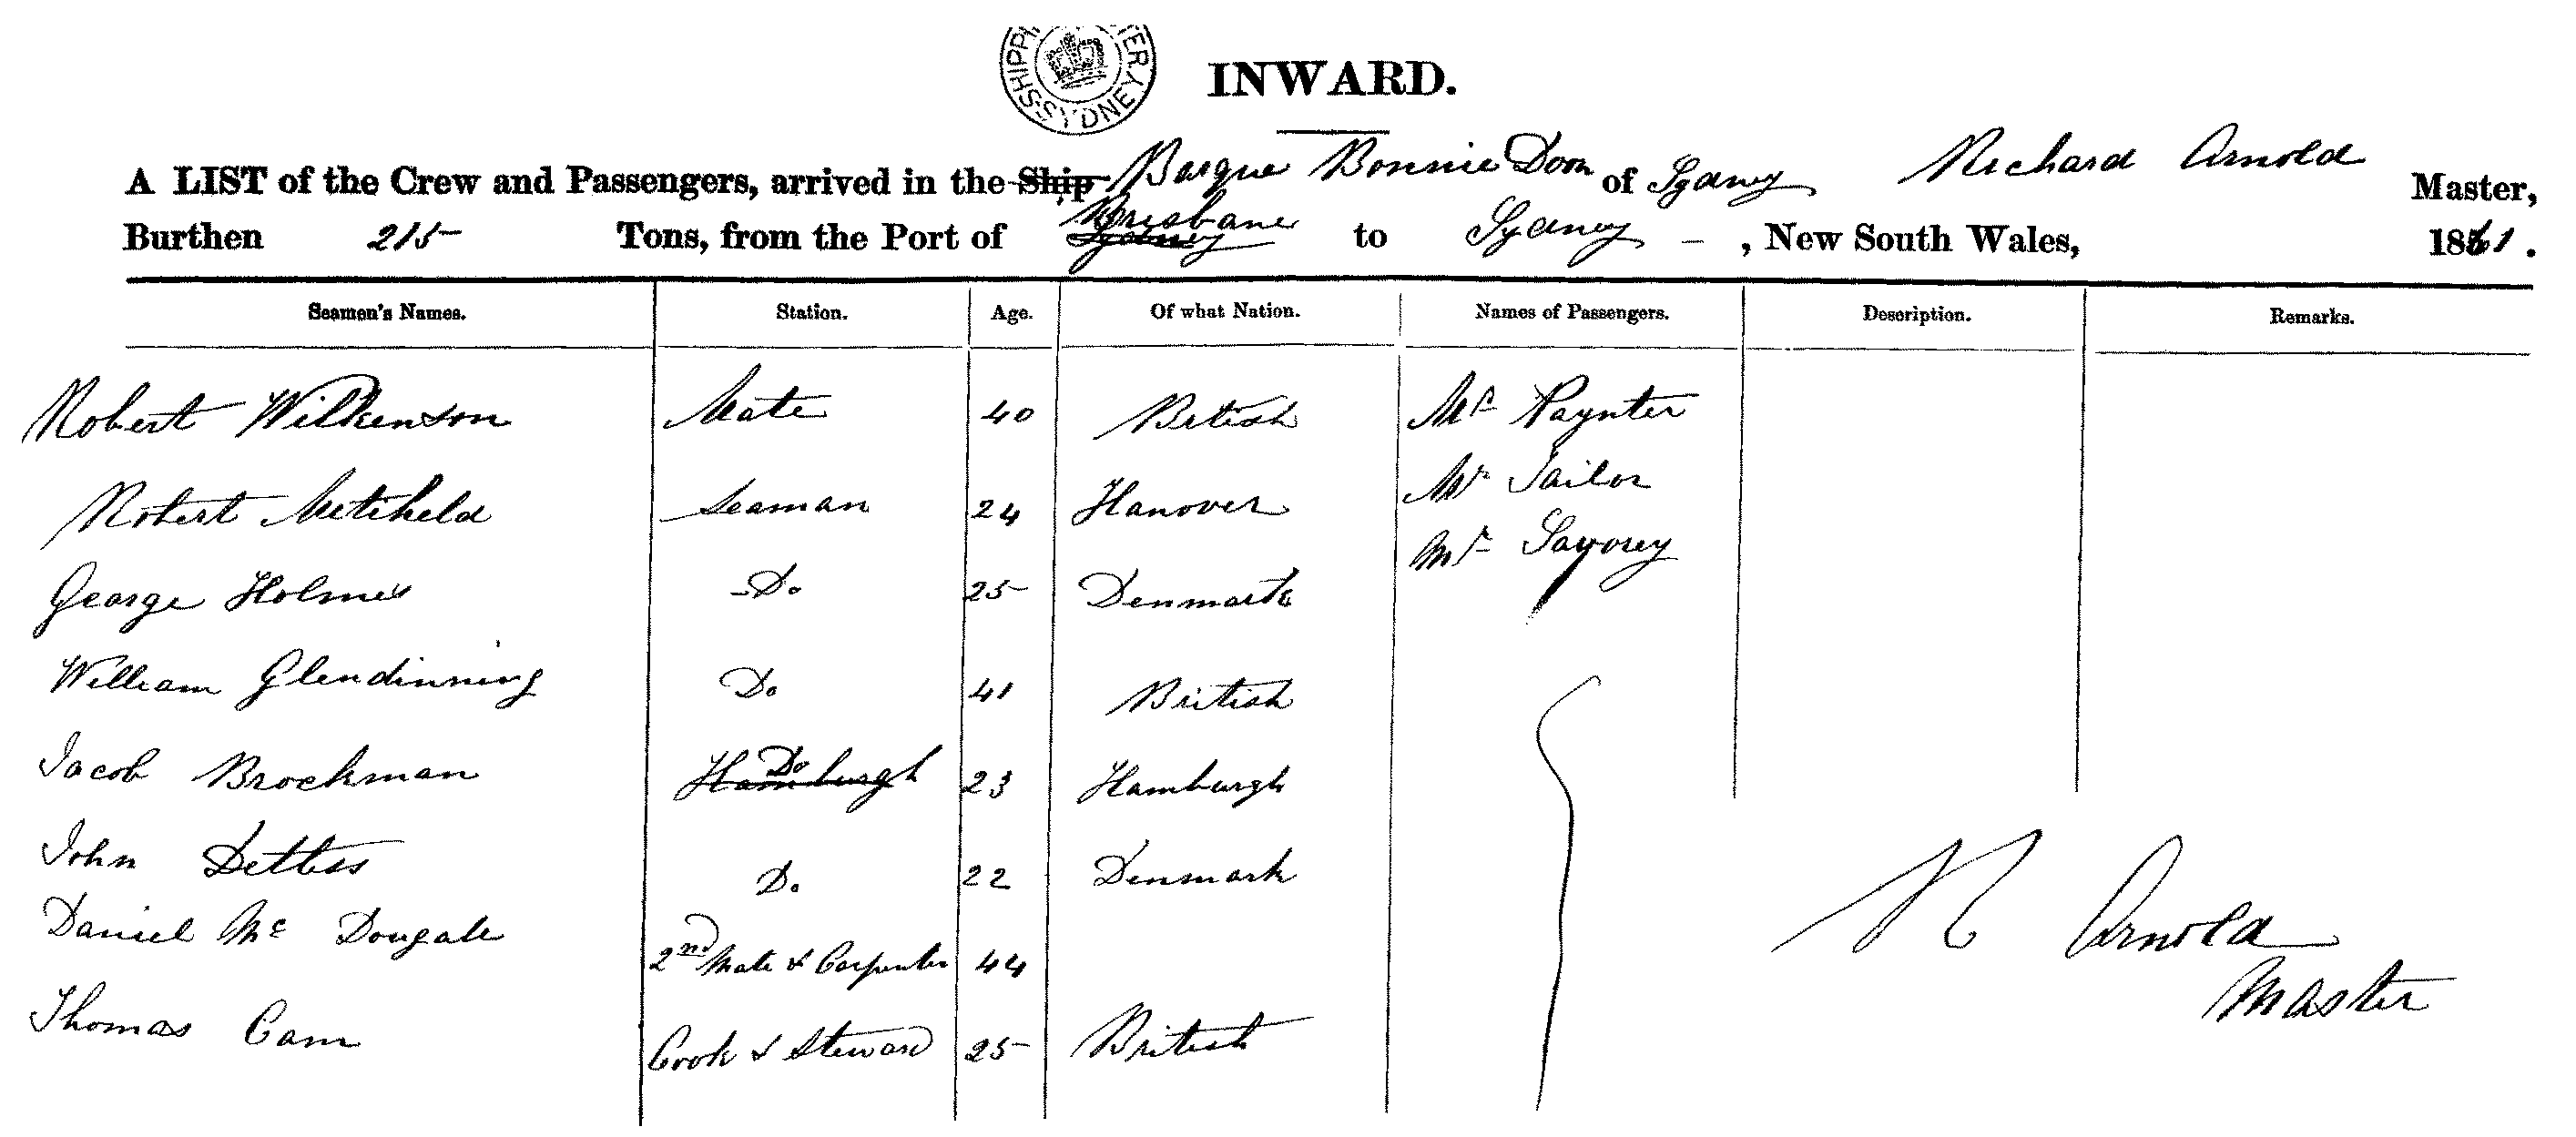 SHIPPI TER SYDNEY
INWARD.
A LIST of the Crew and Passengers, arrived in the Ship Barque Bonnie Doon of Sydney Richard Arnold Master,
Burthen 215 Tons, from the Port of Sydney Brisbane to Sydney - , New South Wales, 1861.
Seamen's Names. Station. Age. Of what Nation. Names of Passengers. Description. Remarks.
Robert Wilkenson Mate 40 British Mr Paynter
Robert Seaman 24 Hanover Mr Tailor
George Holmes Do 25 Denmark Mr Savorey
William Glendinning Do 41 British
Jacob Brockman Hamburgh Do 23 Hamburgh
John Do 22 Denmark
Daniel Mc Dougale 2nd Mate & Carpenter 44
Thomas Cam Cook & Steward 25 British
R Arnold
Master